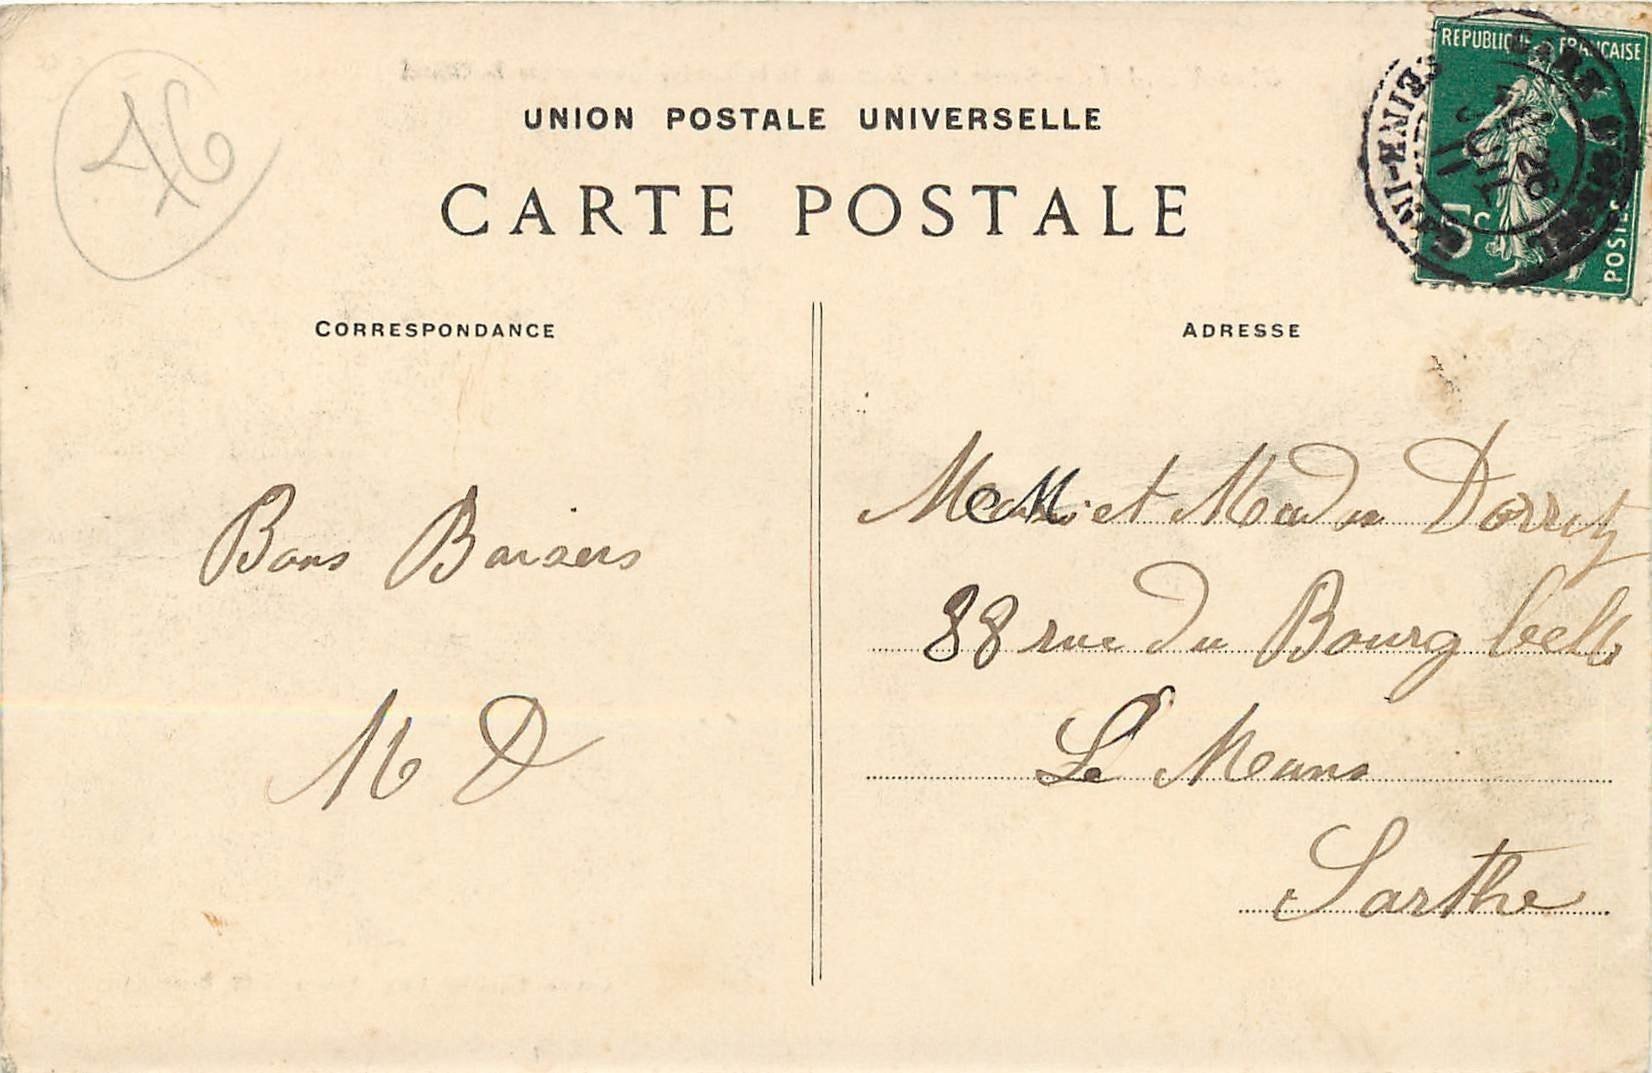 46
UNION POSTALE UNIVERSELLE
CARTE POSTALE
REPUBLIQUE FRANÇAISE
5c
POSTES
26
JUIL
11
CORRESPONDANCE
ADRESSE
Bons Baisers
M D
et Dorrity
88 rue du Bourg belé
Le Mans
Sarthe